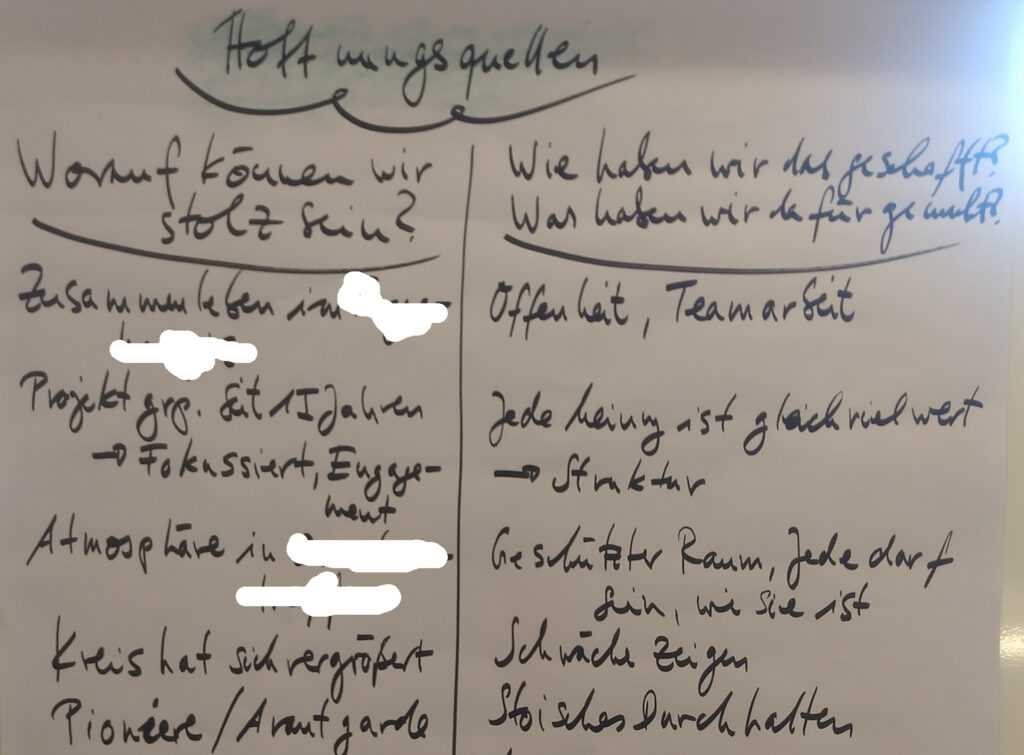 Hoffnungsquellen
Worauf können wir
stolz sein?
Zusammenleben im
Projektgrp. seit 1 Jahren
→ Fokussiert, Engage-
ment
Atmosphäre in
Kreis hat sich vergrößert
Pioniere / Avantgarde
Wie haben wir das geschafft?
Was haben wir dafür gemacht?
Offenheit, Teamarbeit
Jede Meinung ist gleich viel wert
→ Struktur
Geschützter Raum, Jede darf
sein, wie sie ist
Schwäche zeigen
Stoisches Durchhalten